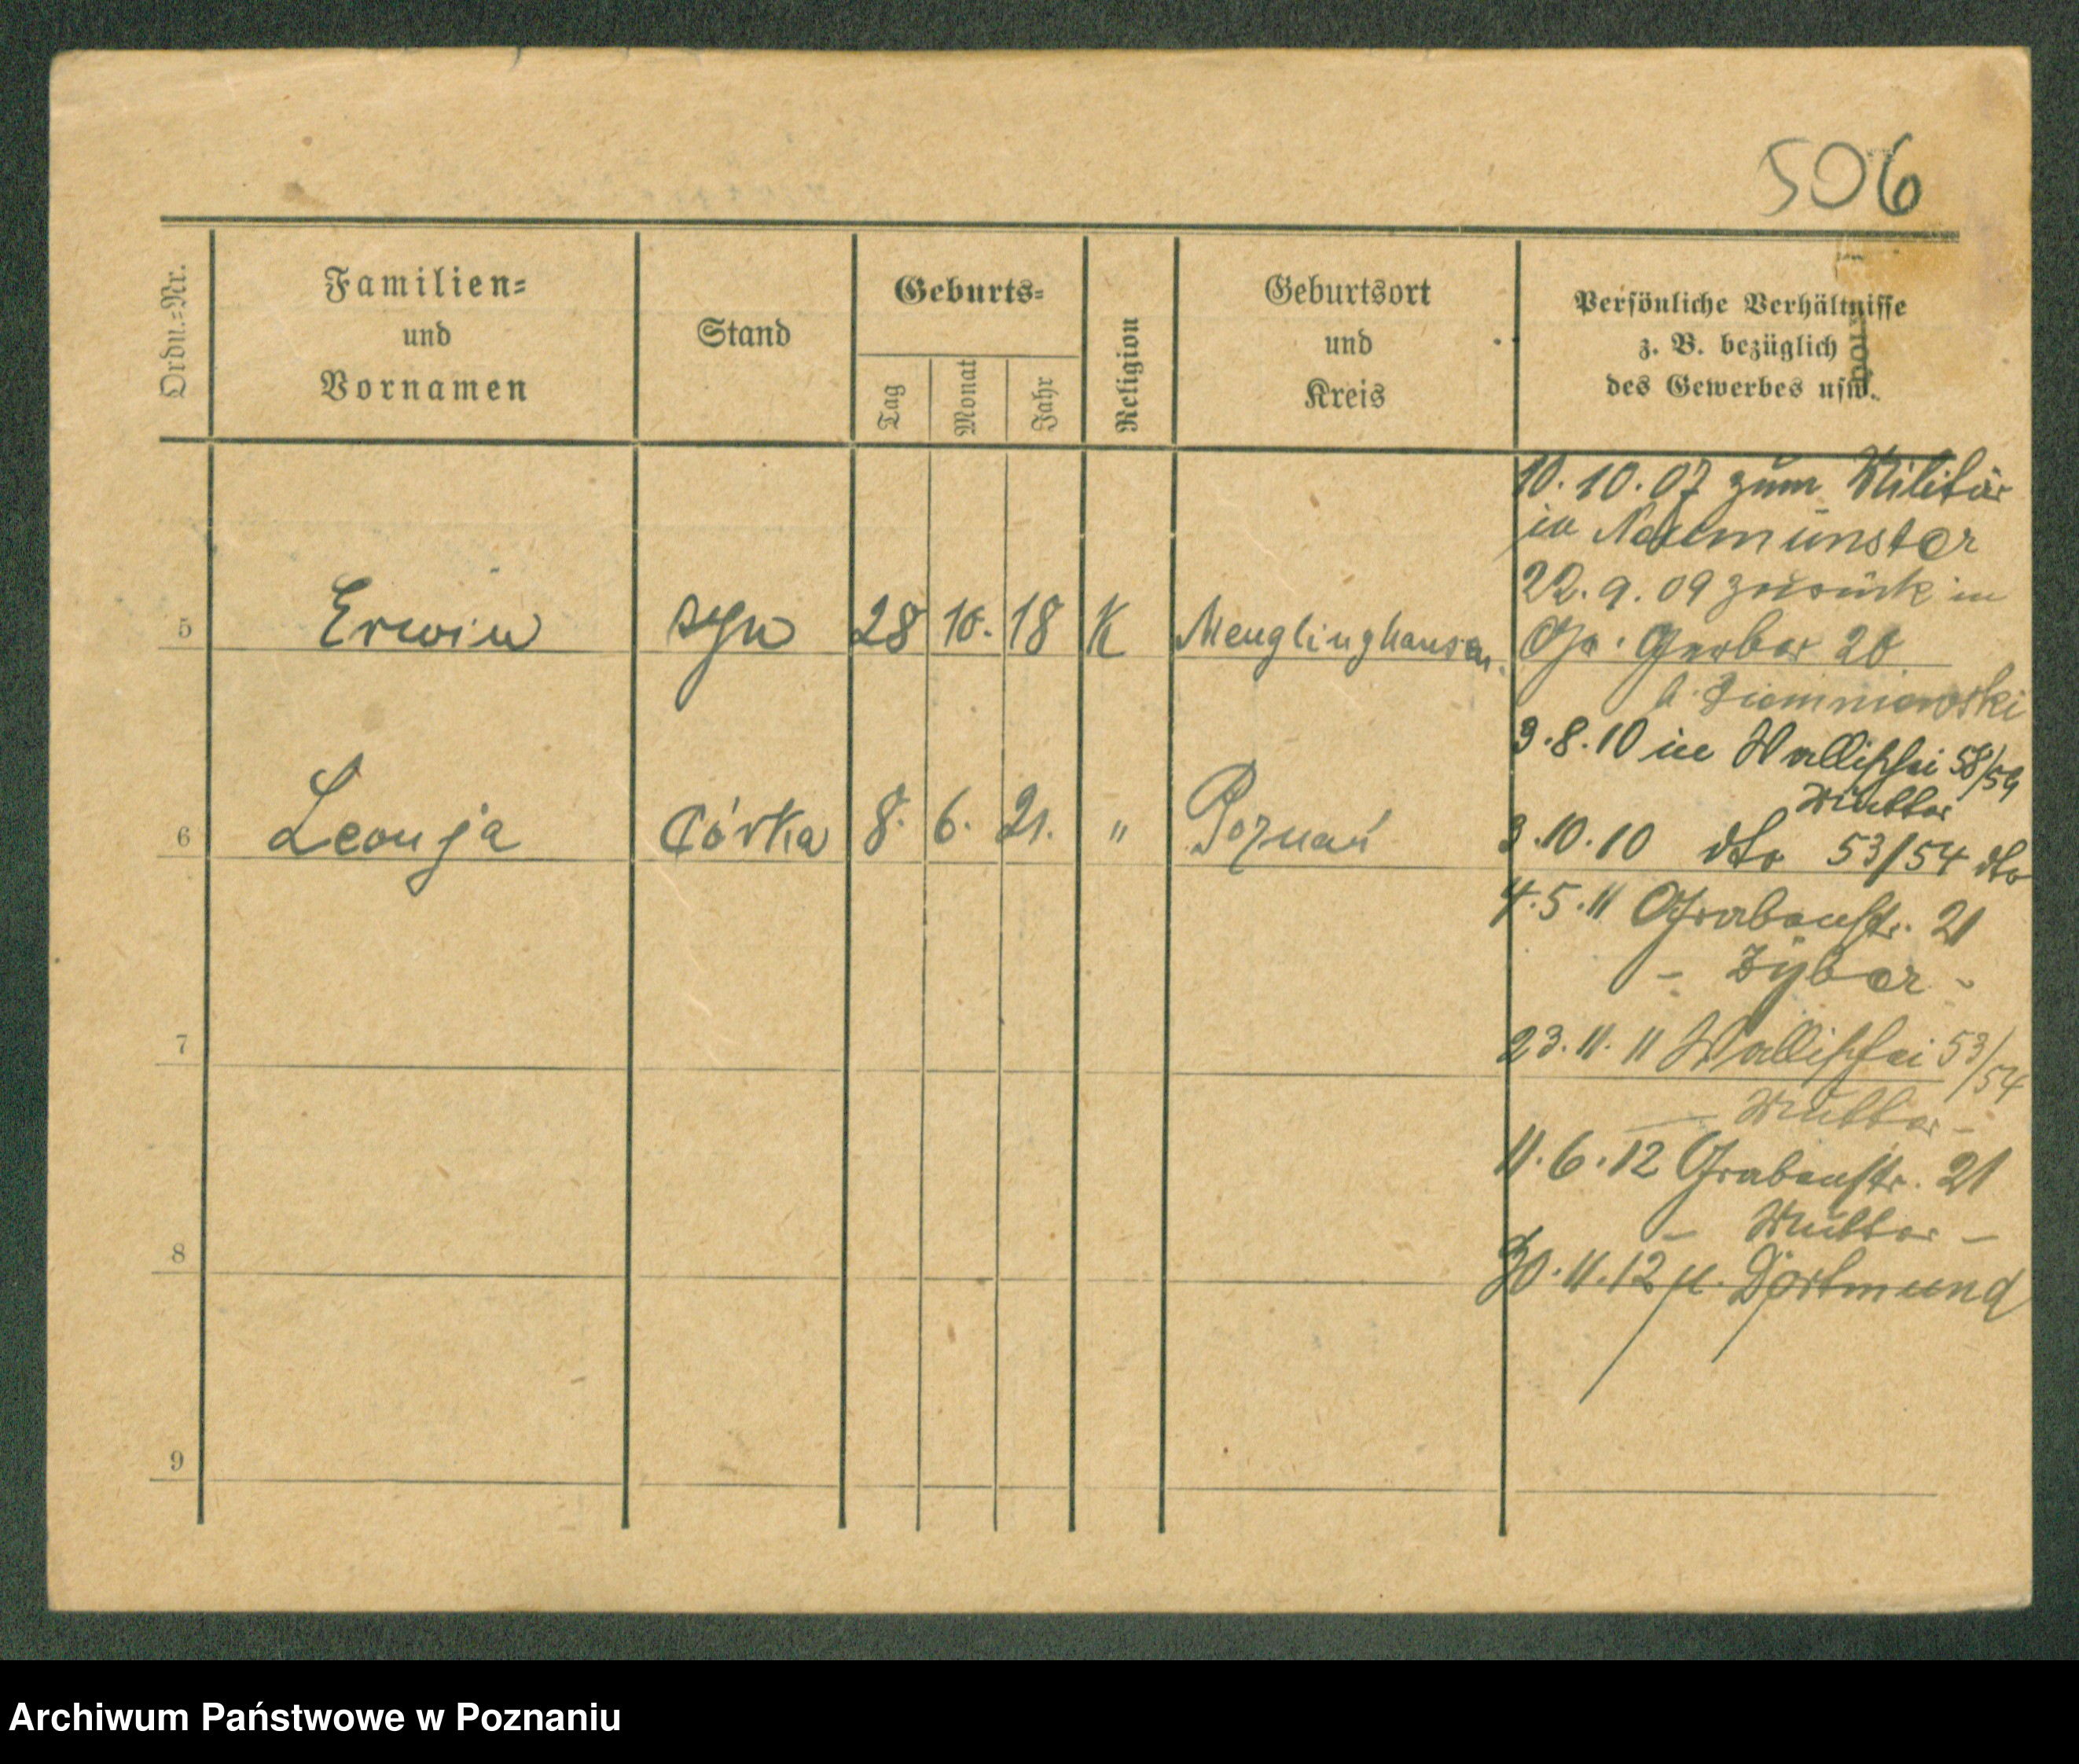 506
Ordn.-Nr.
Familien-
und
Vornamen
Stand
Geburts-
Tag
Monat
Jahr
Religion
Geburtsort
und
Kreis
Persönliche Verhältnisse
z. B. bezüglich
des Gewerbes usw.
10.10.07 zum Militär
in Neumünster
22.9.09 zurück in
Gr. Gerber 20
b. Ziemniewski
5 Erwin syn 28 10. 18 K Menglinghausen
3.8.10 in Wallischei 58/59
Mutter
3.10.10 dto 53/54 dto
6 Leonja Córka 8. 6. 21. " Poznań
4.5.11 Grabenstr. 21
- Zyber -
7
23.11.11 Wallischei 53/54
— Mutter -
11.6.12 Grabenstr. 21
- Mutter -
8
30.11.12 n. Dortmund
9
Archiwum Państwowe w Poznaniu